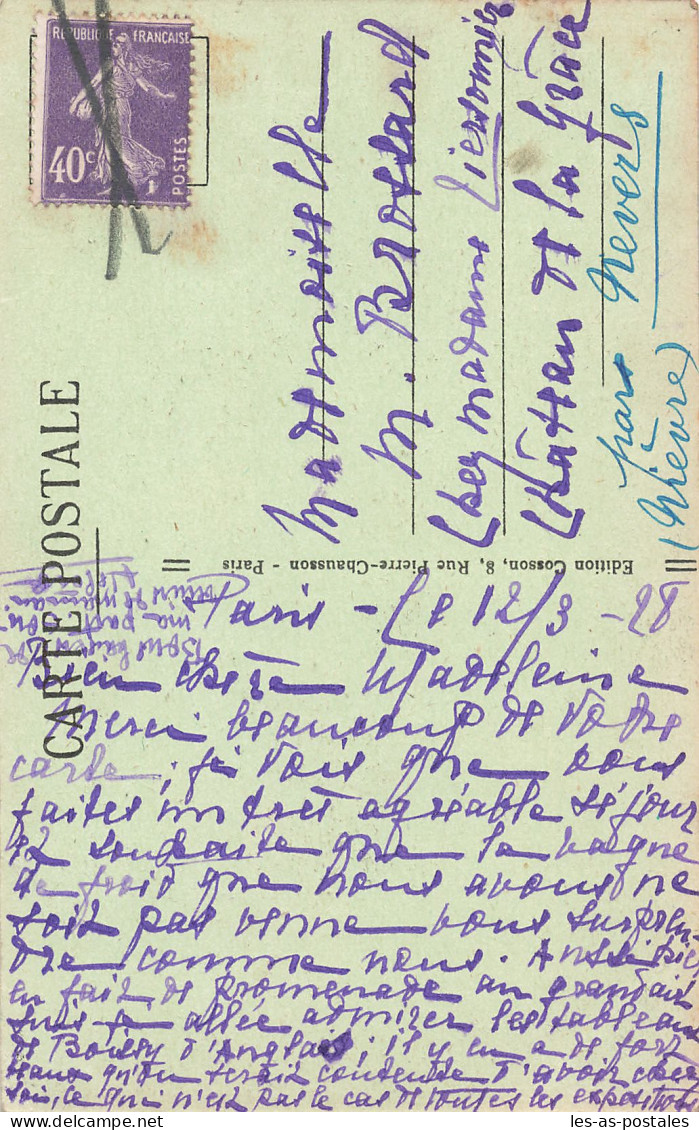 REPUBLIQUE FRANÇAISE
40c
POSTES
CARTE POSTALE
Edition Cosson, 8, Rue Pierre-Chausson - Paris
Mademoiselle
M. Brossard
chez madame
Château de la Grâce
par Nevers
(Nièvre)
Paris - Le 12/3 - 28
Bien chère Madeleine
Merci beaucoup de votre
carte ; je vois que vous
faites un très agréable séjour
et souhaite que la vague
de froid que nous avons ne
soit pas venue vous surpren-
dre comme nous. Aussi
en fait de promenade au grand air
suis-je allée admirer les tableaux
de Boissy d'Anglas ; il y en a de fort
beaux qu'on serait contente d'avoir chez
soi, ce qui n'est pas le cas de toutes les expositions
Bons baisers de
ma part ou
les-as-postales